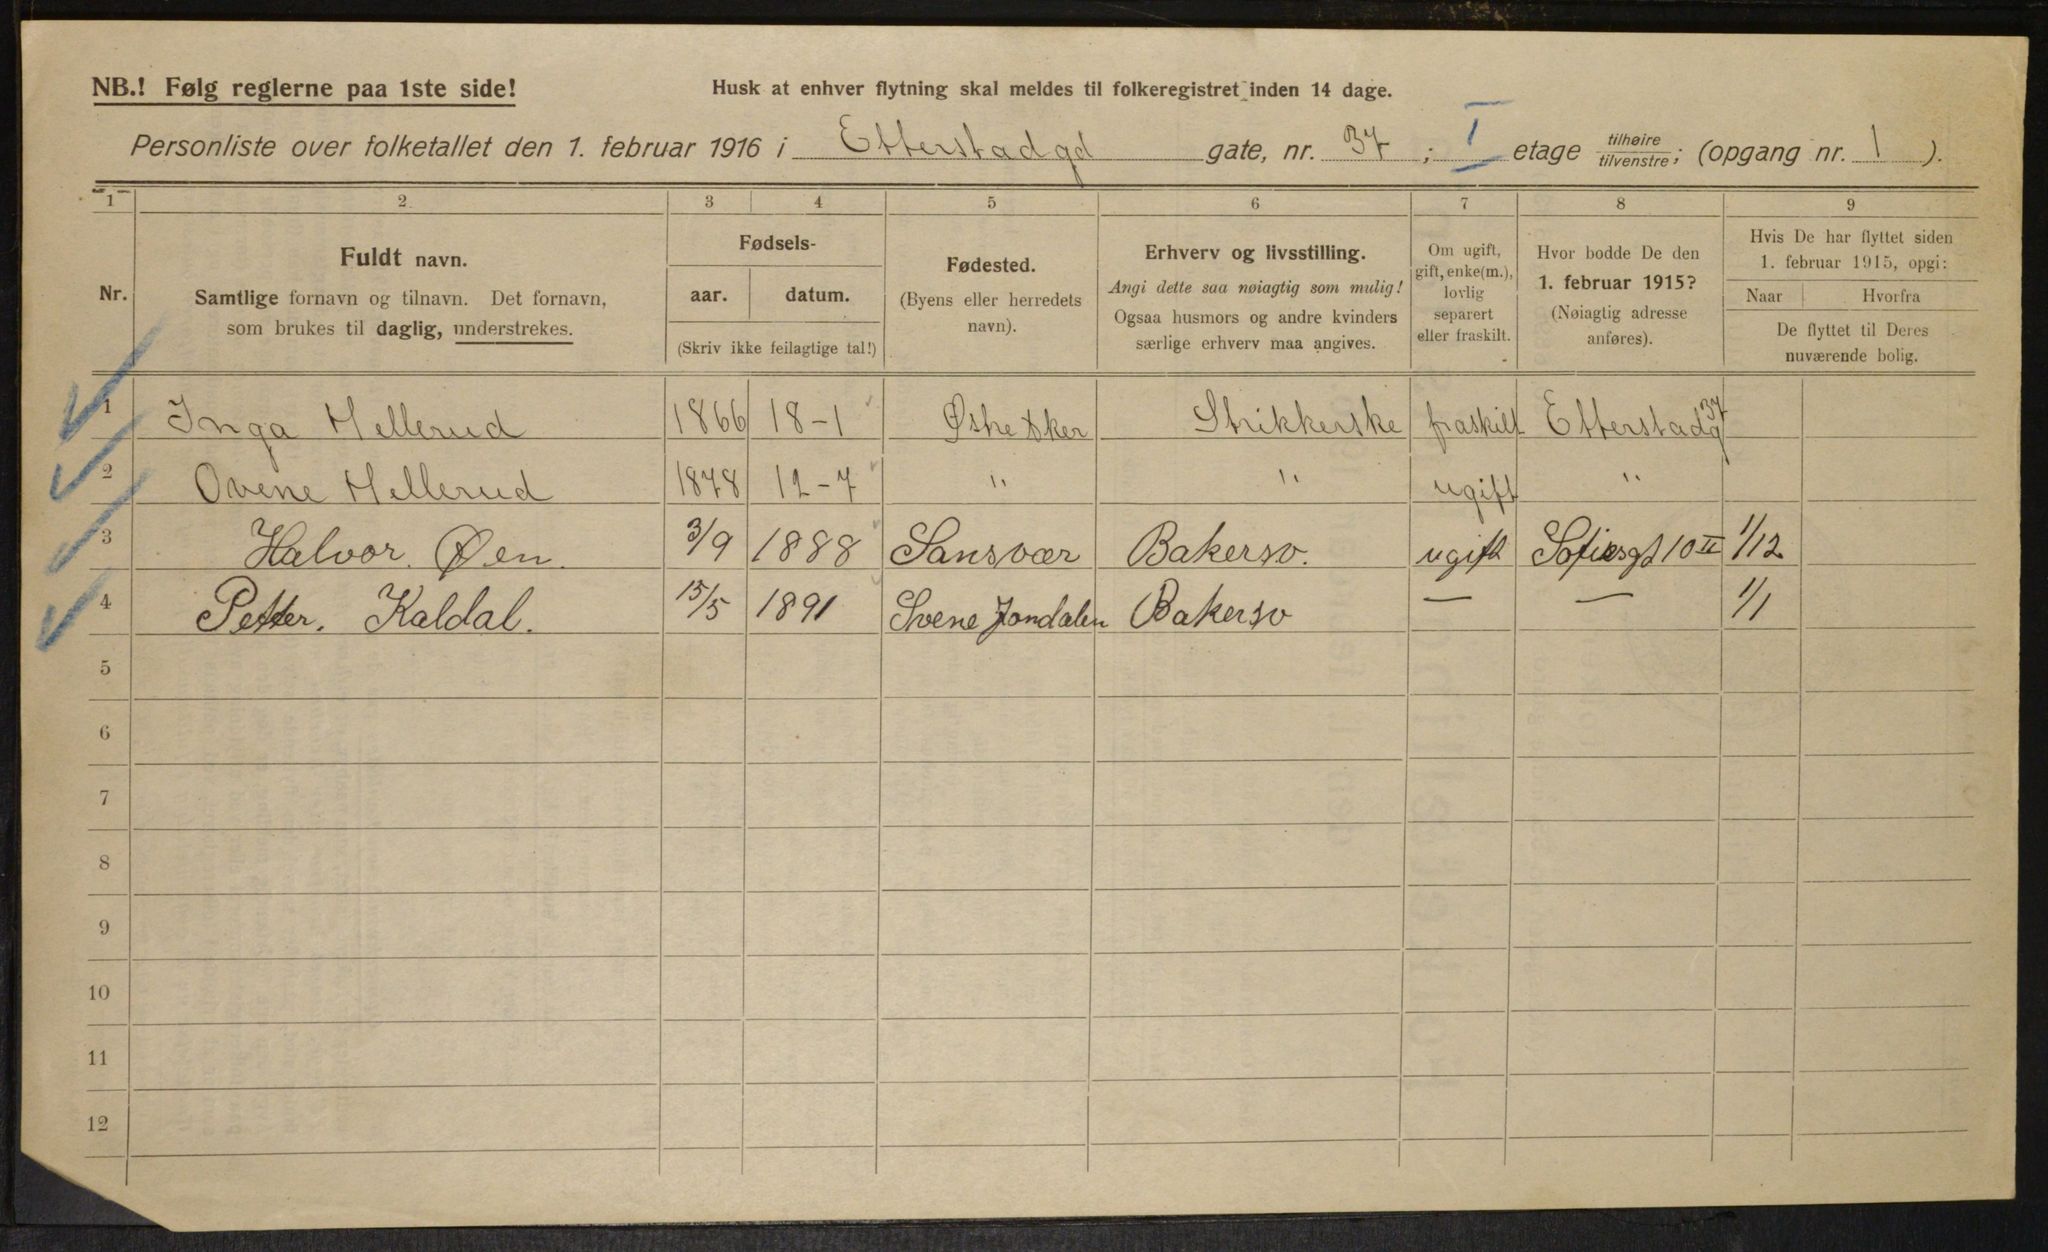 NB.! Følg reglerne paa 1ste side!
Husk at enhver flytning skal meldes til folkeregistret inden 14 dage.
Personliste over folketallet den 1. februar 1916 i Etterstadgd gate, nr. 37 ; I etage tilhøire / tilvenstre ; (opgang nr. 1 ).
1 2 3 4 5 6 7 8 9
Nr.
Fuldt navn.
Samtlige fornavn og tilnavn. Det fornavn,
som brukes til daglig, understrekes.
Fødsels-
aar. datum.
(Skriv ikke feilagtige tal!)
Fødested.
(Byens eller herredets
navn).
Erhverv og livsstilling.
Angi dette saa nøiagtig som mulig!
Ogsaa husmors og andre kvinders
særlige erhverv maa angives.
Om ugift,
gift, enke(m.),
lovlig
separert
eller fraskilt.
Hvor bodde De den
1. februar 1915?
(Nøiagtig adresse
anføres).
Hvis De har flyttet siden
1. februar 1915, opgi:
Naar Hvorfra
De flyttet til Deres
nuværende bolig.
1 Inga Hellerud 1866 18-1 Østre Aker Strikkerske fraskilt Etterstadg 37
2 Ovene Hellerud 1878 12-7 " " ugift "
3 Halvor. Øen. 3/9 1888 Sansvær Bakersv. ugift Sofiesgt 10 II 1/12
4 Petter. Kaldal. 15/5 1891 Svene Jondalen Bakersv — — 1/1
5
6
7
8
9
10
11
12